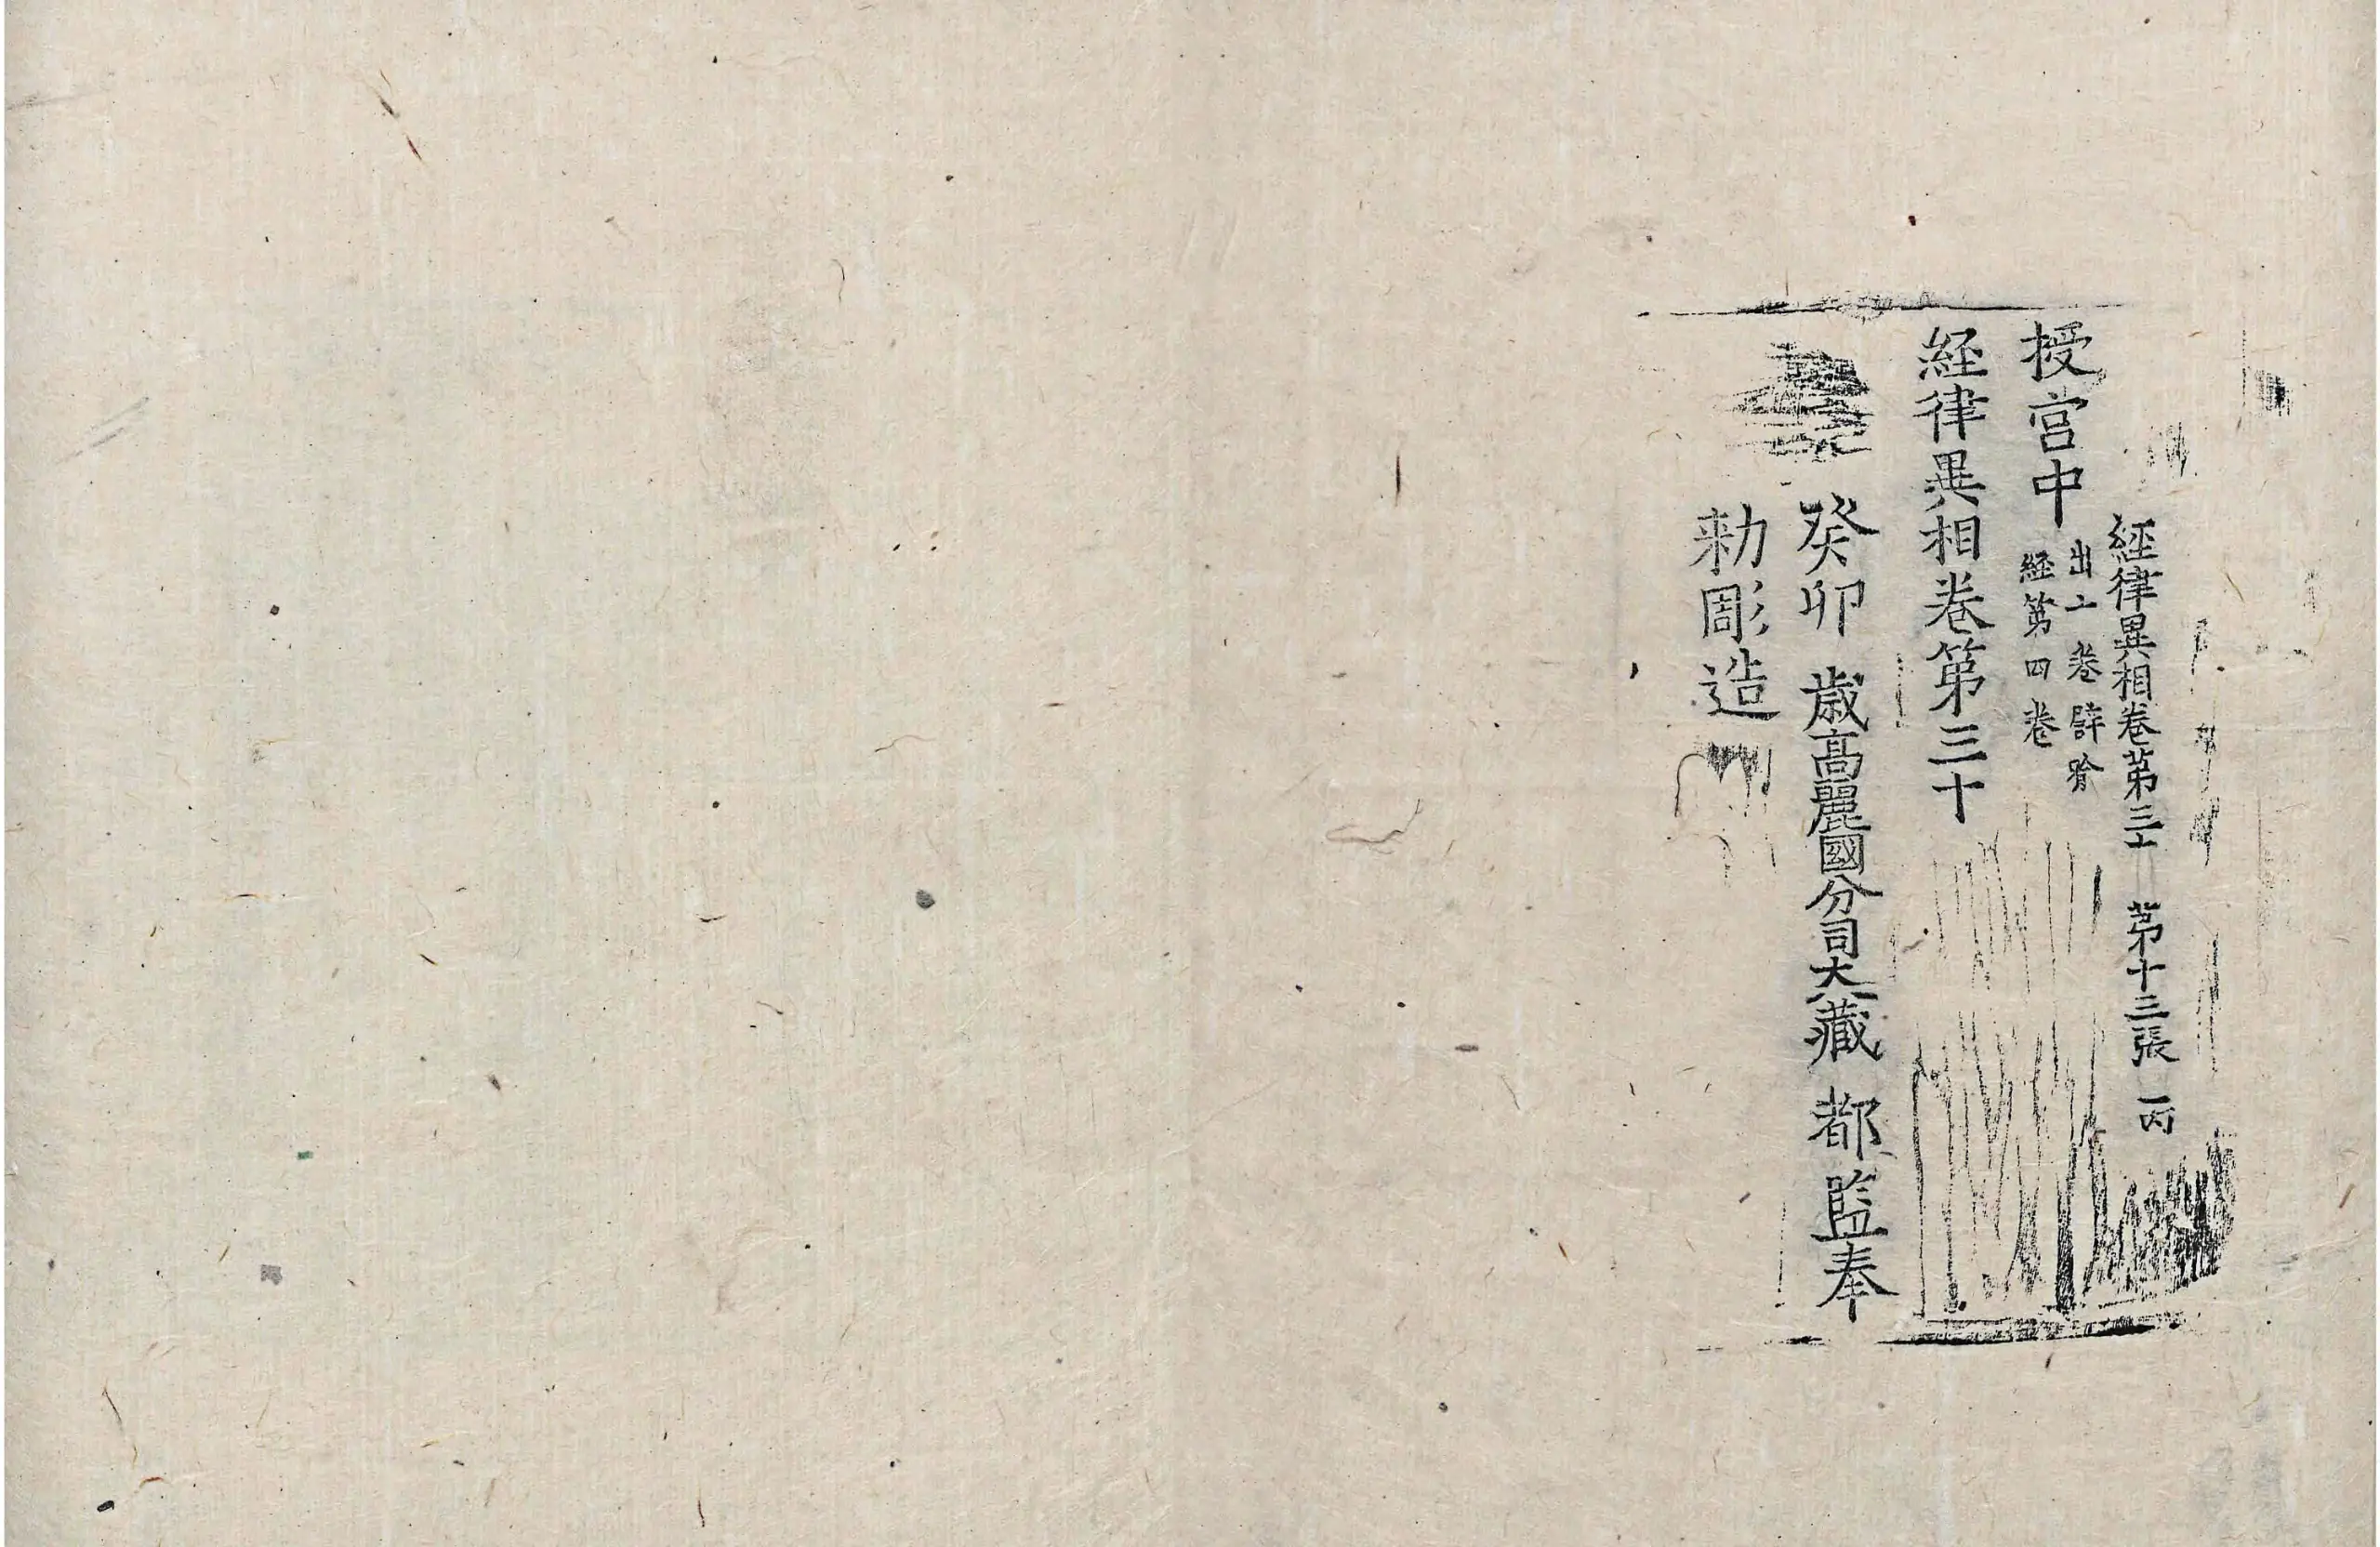 經律異相卷第三十 第十三張 丙
授宮中
出十卷譬喻
經第四卷
經律異相卷第三十
癸卯歲高麗國分司大藏都監奉
勑彫造